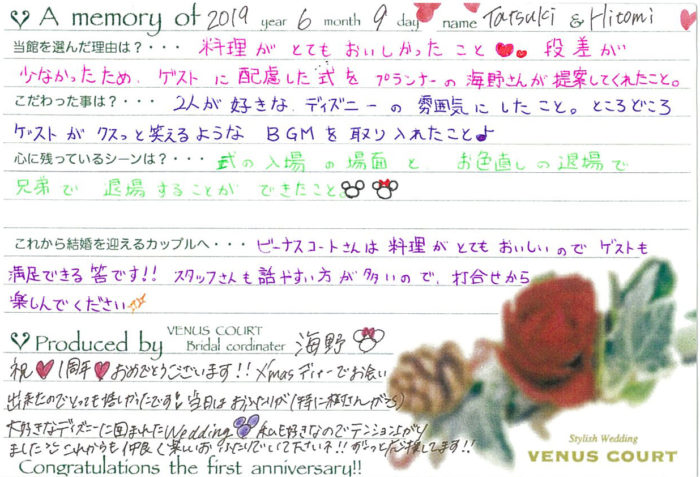 A memory of 2019 year 6 month 9 day name Tatsuki & Hitomi
当館を選んだ理由は？・・・ 料理が とても おいしかった こと 段差が
少なかったため、ゲスト に 配慮した 式を プランナーの 海野さんが 提案してくれたこと。
こだわった事は？・・・ 2人が 好きな ディズニー の 雰囲気に したこと。ところどころ
ゲスト が クスっと 笑えるような BGM を 取り入れたこと♪
心に残っているシーンは？・・・ 式の入場の場面 と、お色直しの退場で
兄弟で 退場することが できたこと。
これから結婚を迎えるカップルへ・・・ ビーナスコートさんは 料理が とても おいしいので ゲストも
満足できる 答です!! スタッフさんも 話やすい方が 多いので、打合せから
楽しんでください
Produced by VENUS COURT
Bridal cordinater 海野
祝 1周年 おめでとうございます!! X'mas ディナーでお会い
出来たのでとっても嬉しかったです! 当日は おふたりが
大好きなディズニーに囲まれたWedding 私も好きなのでテンション上がり
ました これからも仲良く楽しいおふたりでいて下さいネ!! ずーっと応援してます!!
Congratulations the first anniversary!!
Stylish Wedding
VENUS COURT